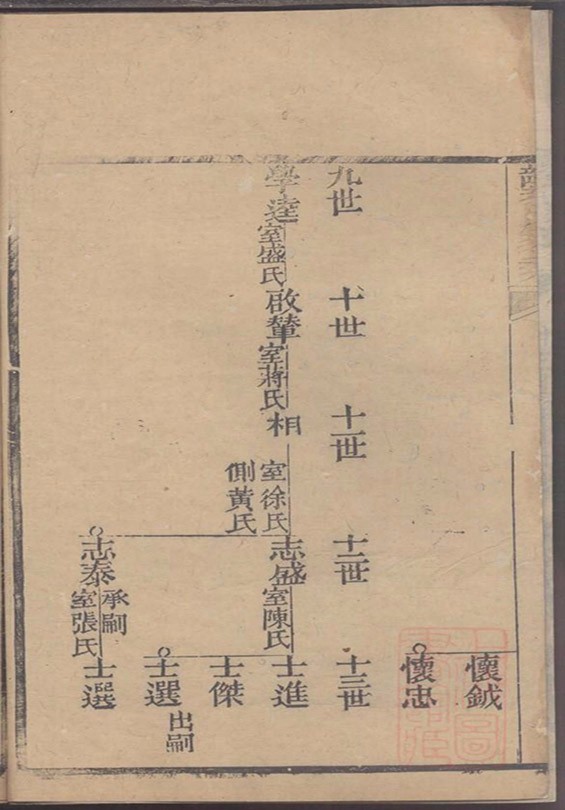 懷鉞
懷忠
九世
十世
十一世
十二世
十三世
學逵
室盛氏
啟輦
室蔣氏
相
室徐氏
側黃氏
志盛
室陳氏
士進
士傑
士選
出嗣
志泰
承嗣
室張氏
士選